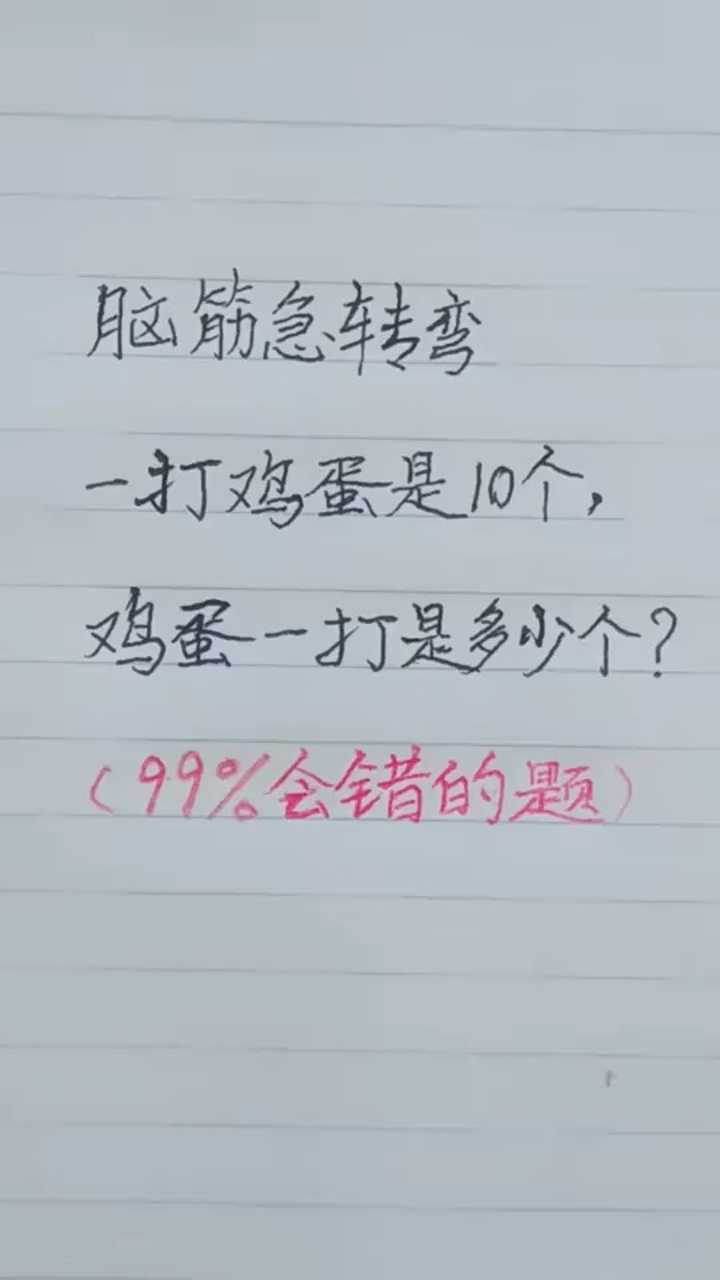 脑筋急转弯
一打鸡蛋是10个,
鸡蛋一打是多少个?
(99%会错的题)